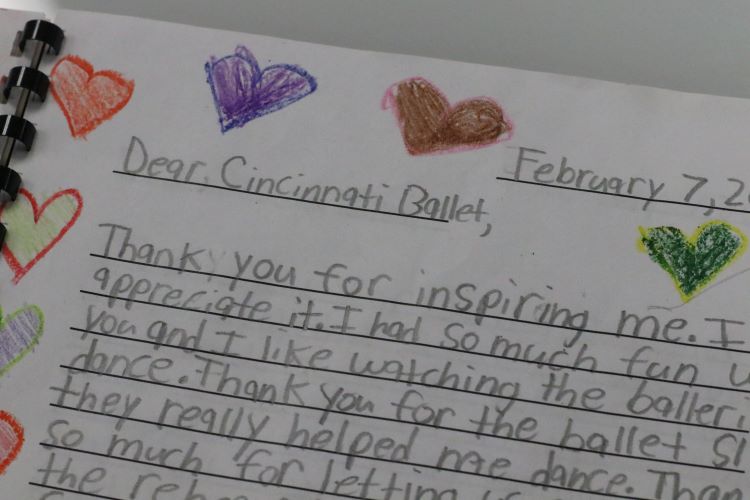 February 7, 2
Dear Cincinnati Ballet,
Thank you for inspiring me. I
appreciate it. I had so much fun
you and I like watching the
dance. Thank you for the ballet
they really helped me dance.
so much for letting
the